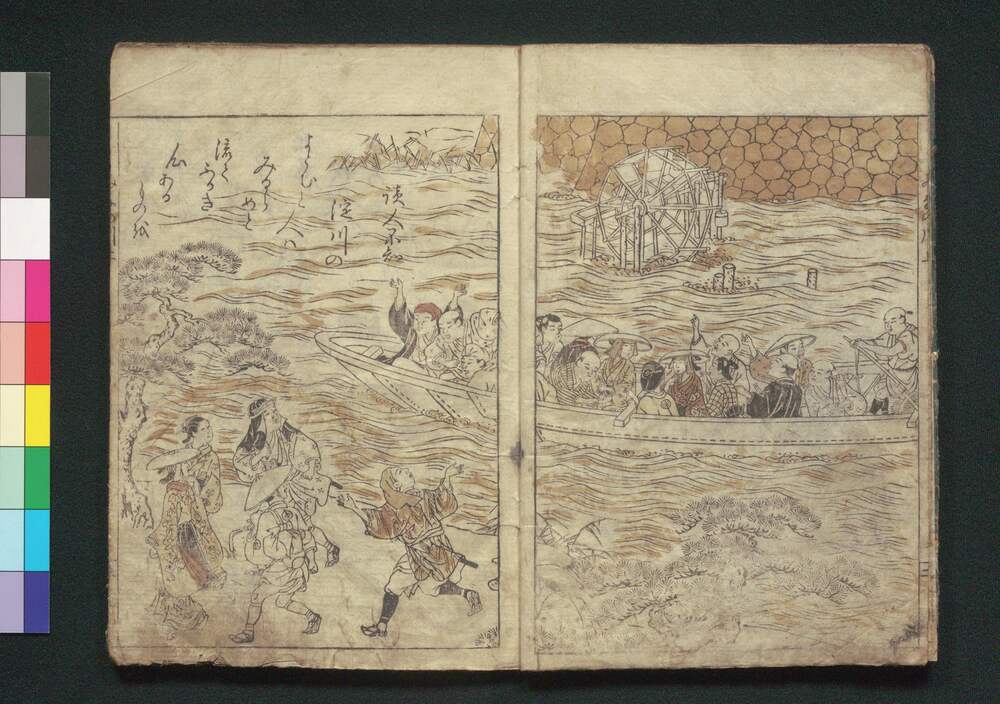 讀人不知
淀川の
よとむと人ハ
みるらめと
流て
ふかき
心ある
ものを